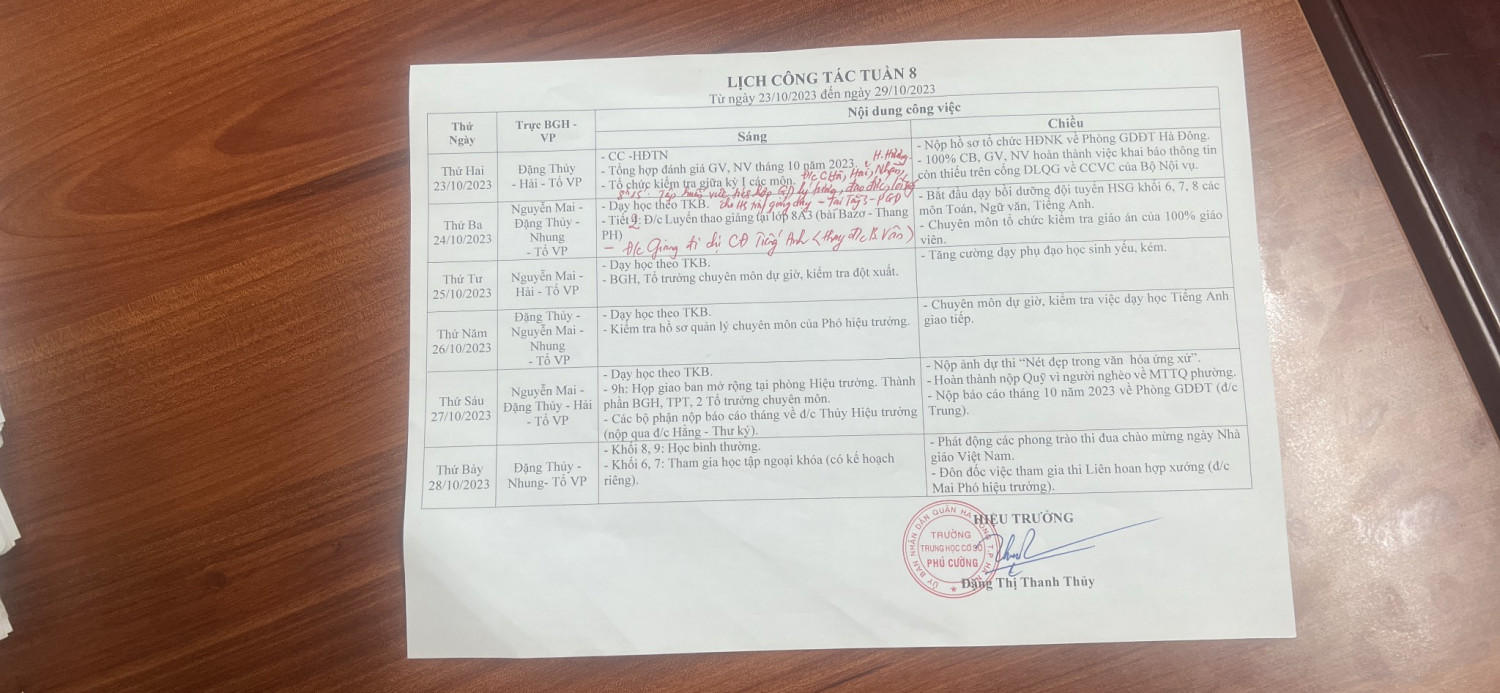 LỊCH CÔNG TÁC TUẦN 8
Từ ngày 23/10/2023 đến ngày 29/10/2023
Thứ
Ngày
Trực BGH -
VP
Nội dung công việc
Sáng
Chiều
Thứ Hai
23/10/2023
Đặng Thủy
- Hải - Tổ VP
- CC -HĐTN
- Tổng hợp đánh giá GV, NV tháng 10 năm 2023.
- Tổ chức kiểm tra giữa kỳ I các môn.
- Nộp hồ sơ tổ chức HĐNK về Phòng GDĐT Hà Đông.
- 100% CB, GV, NV hoàn thành việc khai báo thông tin
còn thiếu trên cổng DLQG về CCVC của Bộ Nội vụ.
8h15: Tập huấn GD lý tưởng, đạo đức, lối sống
cho HS giảng dạy - PGD
Thứ Ba
24/10/2023
Nguyễn Mai -
Đặng Thủy -
Nhung
- Tổ VP
- Dạy học theo TKB.
- Tiết 2: Đ/c Luyến thao giảng tại lớp 8A3 (bài Bazơ - Thang
PH)
- Đ/c Giang đi dự CĐ Tiếng Anh (thay đ/c B. Vân)
- Bắt đầu dạy bồi dưỡng đội tuyển HSG khối 6, 7, 8 các
môn Toán, Ngữ văn, Tiếng Anh.
- Chuyên môn tổ chức kiểm tra giáo án của 100% giáo
viên.
Thứ Tư
25/10/2023
Nguyễn Mai -
Hải - Tổ VP
- Dạy học theo TKB.
- BGH, Tổ trưởng chuyên môn dự giờ, kiểm tra đột xuất.
- Tăng cường dạy phụ đạo học sinh yếu, kém.
Thứ Năm
26/10/2023
Đặng Thủy -
Nguyễn Mai -
Nhung
- Tổ VP
- Dạy học theo TKB.
- Kiểm tra hồ sơ quản lý chuyên môn của Phó hiệu trưởng.
- Chuyên môn dự giờ, kiểm tra việc dạy học Tiếng Anh
giao tiếp.
Thứ Sáu
27/10/2023
Nguyễn Mai -
Đặng Thủy - Hải
- Tổ VP
- Dạy học theo TKB.
- 9h: Họp giao ban mở rộng tại phòng Hiệu trưởng. Thành
phần BGH, TPT, 2 Tổ trưởng chuyên môn.
- Các bộ phận nộp báo cáo tháng về đ/c Thủy Hiệu trưởng
(nộp qua đ/c Hằng - Thư ký).
- Nộp ảnh dự thi “Nét đẹp trong văn hóa ứng xử”.
- Hoàn thành nộp Quỹ vì người nghèo về MTTQ phường.
- Nộp báo cáo tháng 10 năm 2023 về Phòng GDĐT (đ/c
Trung).
Thứ Bảy
28/10/2023
Đặng Thủy -
Nhung- Tổ VP
- Khối 8, 9: Học bình thường.
- Khối 6, 7: Tham gia học tập ngoại khóa (có kế hoạch
riêng).
- Phát động các phong trào thi đua chào mừng ngày Nhà
giáo Việt Nam.
- Đôn đốc việc tham gia thi Liên hoan hợp xướng (đ/c
Mai Phó hiệu trưởng).
HIỆU TRƯỞNG
TRƯỜNG
TRUNG HỌC CƠ SỞ
PHÚ CƯỜNG
Đặng Thị Thanh Thủy